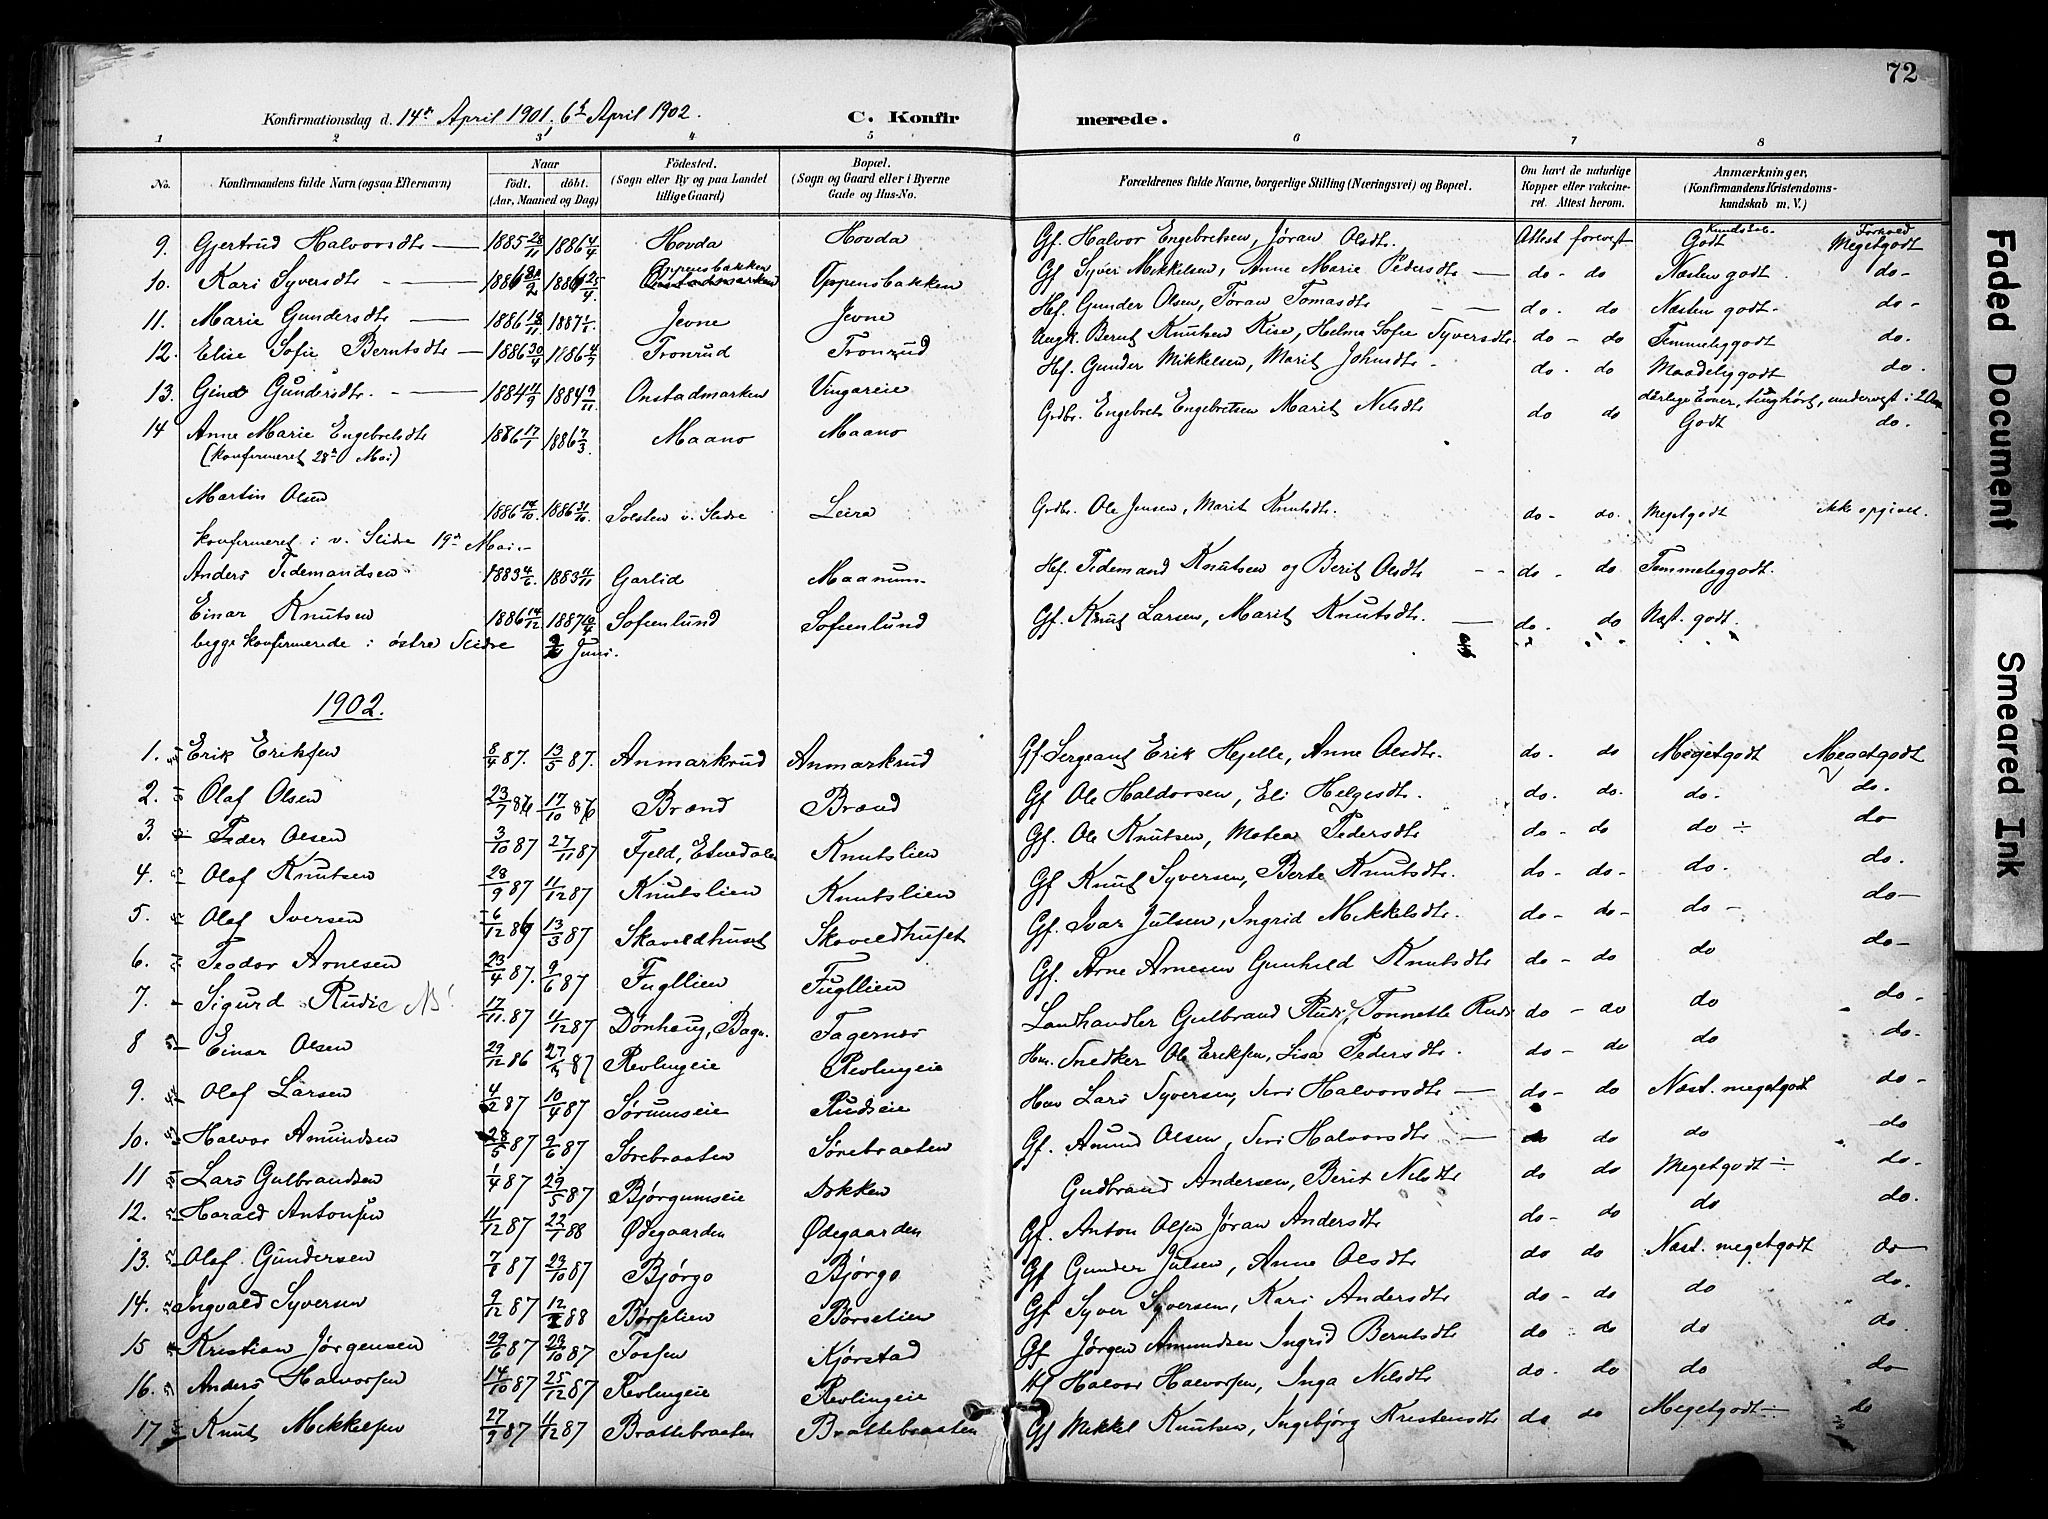 72
Konfirmationsdag d. 14de April 1901, 6te April 1902. C. Konfirmerede.
1 2 3 4 5 6 7 8
No. Konfirmandens fulde Navn (ogsaa Efternavn) Naar født. døbt. (Aar, Maaned og Dag) Fødested. (Sogn eller By og paa Landet tillige Gaard) Bopæl. (Sogn og Gaard eller i Byerne Gade og Hus-No.) Forældrenes fulde Navne, borgerlige Stilling (Næringsvei) og Bopæl. Om havt de naturlige Kopper eller vakcineret. Attest herom. Anmærkninger, (Konfirmandens Kristendomskundskab m. V.)
Kundskab. Forhold
9. Gjertrud Halvorsdtr 1885 28/11 1886 4/4 Hovda Hovda Gf. Halvor Engebretsen, Jøran Olsdtr. Attest forevist Godt Megetgodt
10. Kari Syversdtr 1886 /2 1886 25/4 Oppensbakken Oppensbakken Gf Syver Mikkelsen, Anne Marie Pedersdtr do - do Næsten godt. do-
11. Marie Gundersdtr 1886 18/11 1887 1/1 Jevne Jevne Hf. Gunder Olsen, Jøran Tomasdtr do. do Næsten godt. do-
12. Elise Sofie Berntsdtr 1886 30/4 1886 4/7 Tronrud Tronrud Ungk. Bernt Knutsen Kise, Helene Sofie Syversdtr. do - do Temmeliggodt do.
13. Gina Gundersdtr. 1884 11/9 1884 9/11 Onstadmarken Vingareie Hf. Gunder Mikkelsen, Marit Johnsdtr do. do Maadeliggodt do.
dårlige Evner, tunghørt, undervist i 2 Aar
14 Anne Marie Engebretsdtr 1886 17/1 1886 7/3 Maano Maano Grdbr. Engebret Engebretsen Marit Nilsdtr do do Godt do.
(konfirmeret 28de Mai)
Martin Olsen 1886 14/10. 1886 31/10. Solsten v. Slidre Leira Grdbr. Ole Jensen, Marit Knutsdtr. do- do. Megetgodt ikke opgivet.
konfirmeret i v. Slidre 19de Mai.
Anders Tidemandsen 1883 4/6. 1883 11/11 Garlid Maanum Hf. Tidemand Knutsen og Berit Olsdtr do - do Temmeliggodt.
Einar Knutsen 1886 14/12 1887 10/4 Sofienlund Sofienlund Gf. Knut Larsen, Marit Knutsdtr. do. do Næst. godt.
begge konfirmerede i østre Slidre 2/ Juni.
1902.
1. Erik Eriksen 8/4 87. 13/5 87. Anmarkrud Anmarkrud Gf Sergeant Erik Hejelle, Anne Olsdtr. do. do Megetgodt Megetgodt
2. Olaf Olsen 23/7 86 17/10 86 Brænd Brænd Gf Ole Haldorsen, Eli Helgesdtr. do. do. do. do.
3. Peder Olsen 3/10 87 27/11 87 Fjeld, Etnedalen Knutslien Gf. Ole Knutsen, Matea Pedersdtr do- do do ÷ do
4. Olaf Knutsen 28/9 87 11/12 87 Knutslien Knutslien Gf Knut Syversen, Berte Knutsdtr. do- do- do. do.
5. Olaf Iversen 6/12 86 13/3 87 Skaveldhuset Skaveldhuset Gf. Ivar Julsen, Ingrid Mikkelsdtr. do- do- do - do-
6. Teodor Arnesen 23/4 87. 9/6 87 Fugllien Fugllien Gf. Arne Arnesen Gunhild Knutsdtr do- do do do-
7. Sigurd Rudie NB! 17/11. 87 11/12 87 Dønhaug, Bagn. Fagernes Landhandler Gulbrand Rudi, Tonnette Rudi do - do do do-
8 Einar Olsen 29/12 86 27/3 87 Revlingeie Revlingeie Hm. Snedker Ole Eriksen, Lisa Pedersdtr. do- do do do.
9. Olaf Larsen 4/2 87 10/4 87 Sørumseie Rudseie Hm Lars Syversen, Siri Halvorsdtr do- do Næst. megetgodt do-
10. Halvor Amundsen 28/5 87 9/6 87 Sørebraaten Sørebraaten Gf. Amund Olsen, Siri Halvorsdtr do do do do
11 Lars Gulbrandsen 1/4 87 29/5 87 Bjørgumseie Dokken Gudbrand Andersen, Berit Nilsdtr do do Megetgodt ÷ do.
12. Harald Antonsen 11/12 87 22/1 88 Ødegaarden Ødegaarden Gf. Anton Olsen Jøran Andersdtr do- do do do.
13. Olaf Gundersen 7/8 87 23/10 87 Bjørgo Bjørgo Gf Gunder Julsen, Anne Olsdtr do do Næst. megetgodt do
14. Ingvald Syversen 9/12 87 12/2 88 Børselien Børselien Gf Syver Syversen, Kari Andersdtr do- do do do.
15 Kristian Jørgensen 29/6 87 23/10 87 Fossen Kjørstad Gf Jørgen Amundsen Ingrid Berntsdtr do do do do.
16. Anders Halvorsen 14/10 87 25/12 87 Revlingeie Revlingeie Hf Halvor Halvorsen, Inga Nilsdtr do. do do do
17 Knut Mikkelsen 27/9 87 11/12 87 Brattebraaten Brattebraaten Gf Mikkel Knutsen, Ingebjørg Kristensdtr do do Megetgodt ÷ do
Faded Document
Smeared Ink